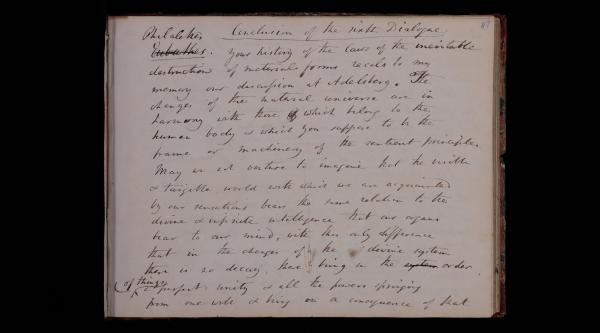 Conclusion of the sixth Dialogue 87
Philalethes
Eubathes. Your history of the laws of the inevitable
destruction of material forms recals to my
memory our discussion at Adelsberg. The
changes of the material universe are in
harmony with those which belong to the
human body & which you suppose to be the
frame or machinery of the sentient principle.
May we not venture to imagine that the visible
& tangible world with which we are acquainted
by our sensations bears the same relation to the
divine & infinite intelligence that our organs
bear to our mind, with this only difference
that in the changes of the divine system
there is no decay, there being in the system order
of things a perfect unity & all the powers springing
from one will & being on a consequence of that